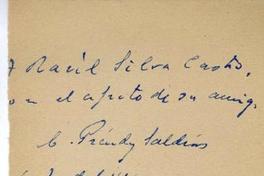 A Raúl Silva Castro,
con el afecto de su amigo
C. Préndez Saldías